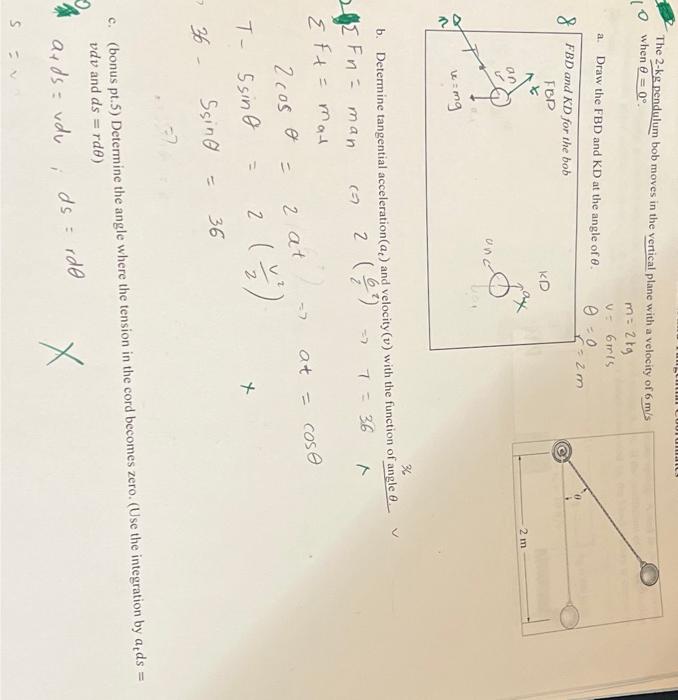 The 2-kg pendulum bob moves in the vertical plane with a velocity of 6 m/s
10 when θ = 0°.
m = 2 kg
v = 6 m/s
θ = 0
r = 2 m
a. Draw the FBD and KD at the angle of θ.
8 FBD and KD for the bob
FBD
KD
an
T
w = mg
n
an
θ
2 m
b. Determine tangential acceleration(aₜ) and velocity(v) with the function of angle θ.
Σ Fn = man (=) 2 (6²/2) => T = 36
Σ Ft = mat
2 cos θ = 2 at => at = cosθ
T - 5sinθ = 2 (v²/2)
36 - 5sinθ = 36
=>
c. (bonus pt.5) Determine the angle where the tension in the cord becomes zero. (Use the integration by aₜds =
vdv and ds = rdθ)
atds = vdv ; ds = rdθ
s = v